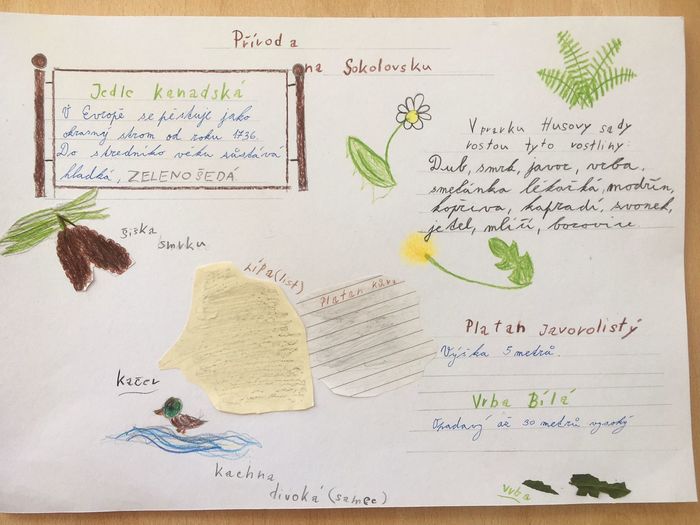 Příroda
na Sokolovsku
Jedle kanadská
V Evropě se pěstuje jako
okrasný strom od roku 1736.
Do středního věku zůstává
hladká, ZELENOŠEDÁ
V parku Husovy sady
rostou tyto rostliny:
Dub, smrk, javor, vrba,
smetánka lékařská, modřín,
kopřiva, kapradí, zvonek,
jetel, mlíčí, borovice
šiška
smrku
Lípa (list)
Platan kůra
Platan Javorolistý
Výška 5 metrů.
Vrba Bílá
Opadavý až 30 metrů vysoký
kačer
kachna
divoká (samec)
vrba